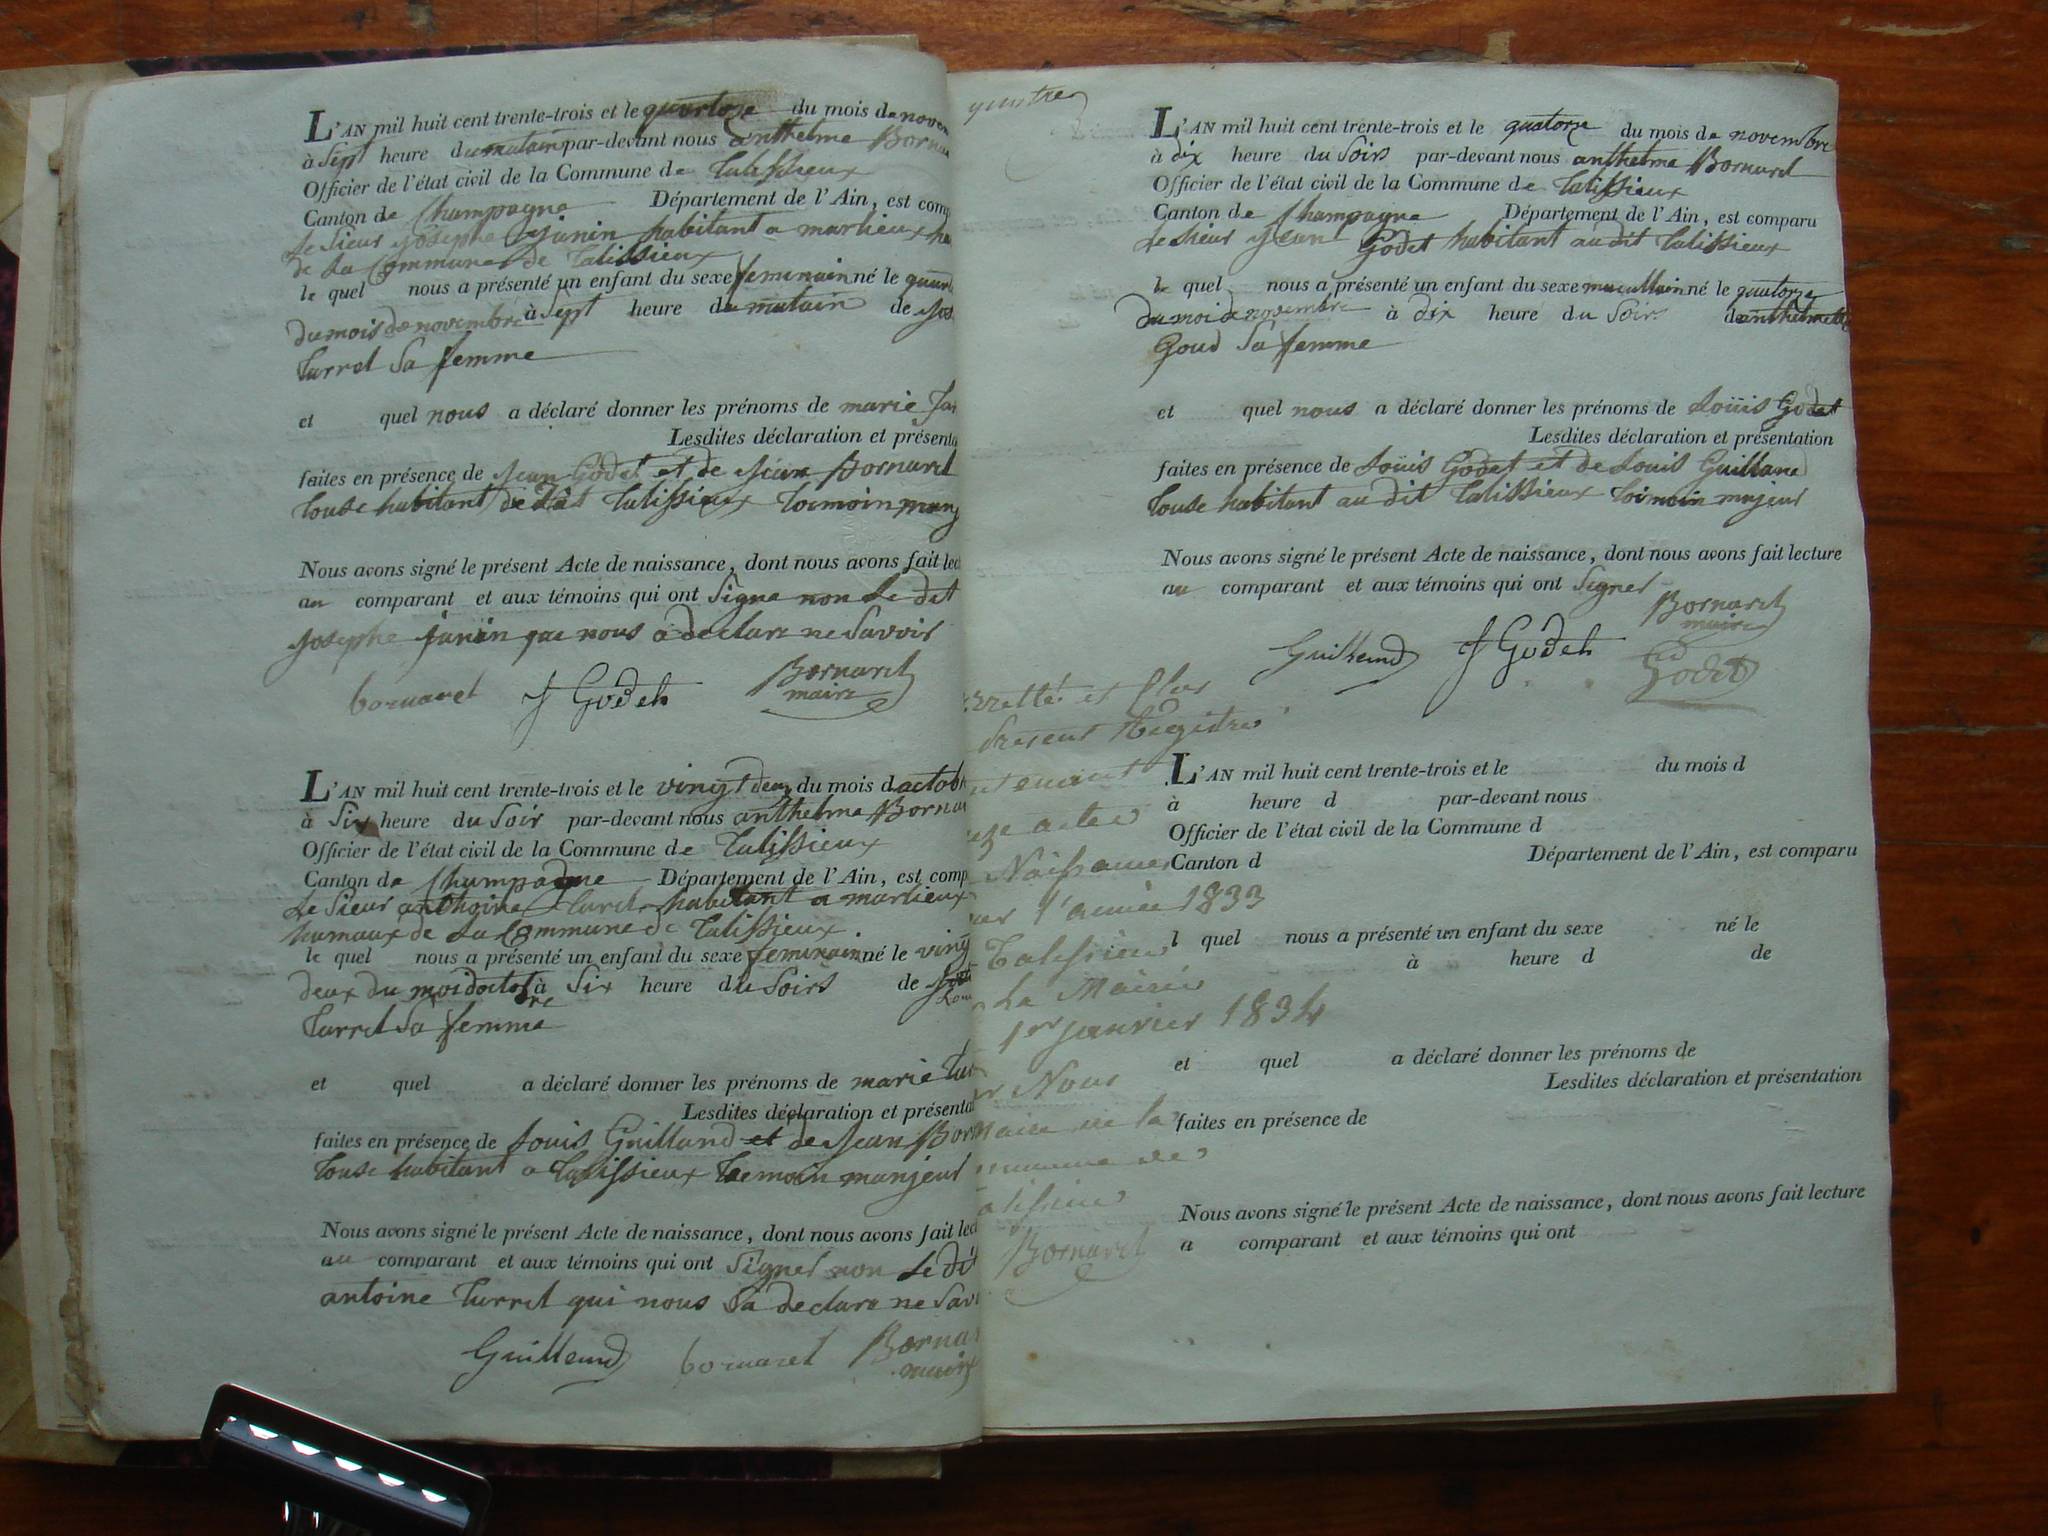 L'AN mil huit cent trente-trois et le quartoze du mois de novem
à Sept heure du matain par-devant nous anthelme Bornar
Officier de l'état civil de la Commune de Talissieux
Canton de Champagne Département de l'Ain, est comp
Le Sieur Josephe Janin habitant a marlieux ha
de La Commune de Talissieux
le quel nous a présenté un enfant du sexe feminain né le quar
du mois de novembre à Sept heure du matain de Jos
Turrel Sa femme
et quel nous a déclaré donner les prénoms de marie Jan
Lesdites déclaration et présenta
faites en présence de Jean Godet et de Jean Bornarel
Touse habitant Talissieux
Nous avons signé le présent Acte de naissance, dont nous avons fait lec
au comparant et aux témoins qui ont Signe non Le dit
Josephe janin que nous a declare ne Savoir
bornarel J Godet Bornarel
maire
L'AN mil huit cent trente-trois et le vingt deux du mois d'actob
à Six heure du Soir par-devant nous anthelme Bornar
Officier de l'état civil de la Commune de Talissieux
Canton de Champagne Département de l'Ain, est comp
Le Sieur anthoine Turel habitant a marlieux
hamaux de La Commune de Talissieux
le quel nous a présenté un enfant du sexe feminain né le ving
deux du moi doctobre à Six heure du Soirs de
Turrel Sa femme
et quel a déclaré donner les prénoms de marie Tur
Lesdites déclaration et présentat
faites en présence de Louis Guilland et de Jean Bor
Touse habitant a Talissieux temoin manjeur
Nous avons signé le présent Acte de naissance, dont nous avons fait lec
au comparant et aux témoins qui ont Signer non Le dit
antoine Turrel qui nous Sa declare ne Sav
Guilland bornarel Bornar
maire
quatre
arretté et Clos
present Registre
contenant
actes
Naissances
pour l'année 1833
Talissieu
La Mairie
1er janvier 1834
Nous
Maire de la
commune de
Talissieu
Bornarel
L'AN mil huit cent trente-trois et le quatorze du mois de novembre
à dix heure du Soirs par-devant nous anthelme Bornarel
Officier de l'état civil de la Commune de Talissieux
Canton de Champagne Département de l'Ain, est comparu
Le Sieur Jean Godet habitant au dit Talissieux
le quel nous a présenté un enfant du sexe masculain né le quatorze
du moi de novembre à dix heure du Soirs de anthelmette
Goud Sa femme
et quel nous a déclaré donner les prénoms de Loüis Godet
Lesdites déclaration et présentation
faites en présence de Loüis Godet et de Louis Guilland
Touse habitant au dit Talissieux Toimoin majeur
Nous avons signé le présent Acte de naissance, dont nous avons fait lecture
au comparant et aux témoins qui ont Signer
Bornarel
maire
Guilland J Godet Godet
L'AN mil huit cent trente-trois et le du mois d
à heure d par-devant nous
Officier de l'état civil de la Commune d
Canton d Département de l'Ain, est comparu
l quel nous a présenté un enfant du sexe né le
à heure d de
et quel a déclaré donner les prénoms de
Lesdites déclaration et présentation
faites en présence de
Nous avons signé le présent Acte de naissance, dont nous avons fait lecture
a comparant et aux témoins qui ont